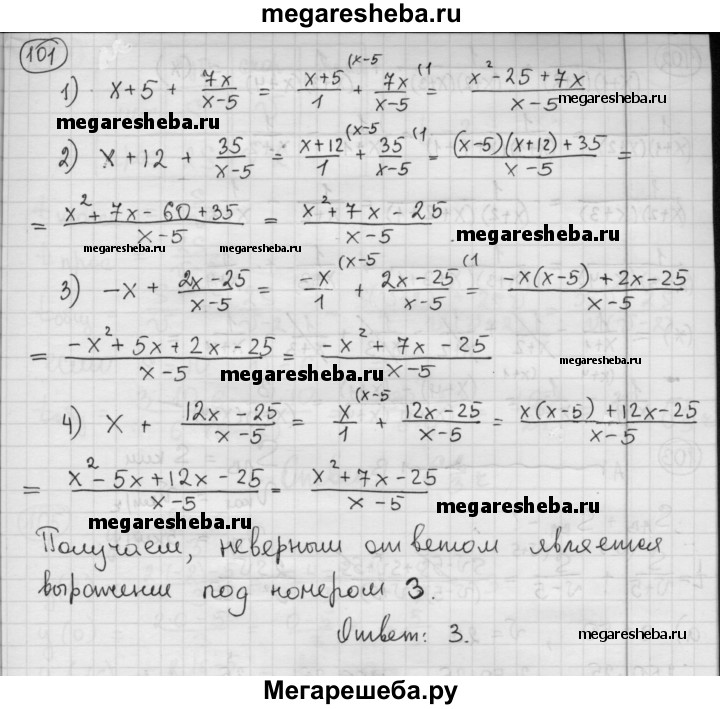 megaresheba.ru
101
1) x+5 + 7x/(x-5) = (x+5)/1 (x-5 + 7x/(x-5) (1 = (x² - 25 + 7x)/(x-5)
megaresheba.ru megaresheba.ru
2) x+12 + 35/(x-5) = (x+12)/1 (x-5 + 35/(x-5) (1 = ((x-5)(x+12) + 35)/(x-5) =
= (x² + 7x - 60 + 35)/(x-5) = (x² + 7x - 25)/(x-5)
megaresheba.ru megaresheba.ru megaresheba.ru
3) -x + (2x-25)/(x-5) = -x/1 (x-5 + (2x-25)/(x-5) (1 = (-x(x-5) + 2x-25)/(x-5)
= (-x² + 5x + 2x - 25)/(x-5) = (-x² + 7x - 25)/(x-5)
megaresheba.ru megaresheba.ru
4) x + (12x - 25)/(x-5) = x/1 (x-5 + (12x-25)/(x-5) = (x(x-5) + 12x-25)/(x-5)
= (x² - 5x + 12x - 25)/(x-5) = (x² + 7x - 25)/(x-5)
megaresheba.ru megaresheba.ru
Получаем, неверным ответом является
выражение под номером 3.
Ответ: 3.
megaresheba.ru
Мегарешеба.ру